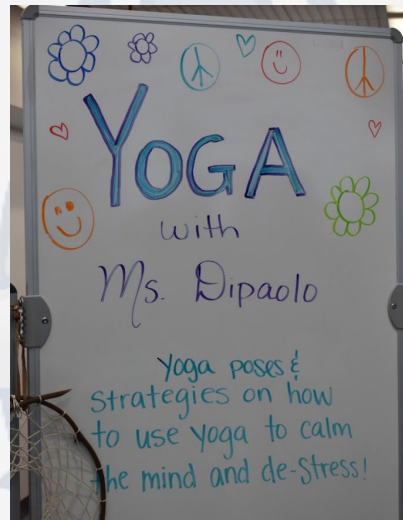 YOGA
with
Ms. Dipaolo
Yoga poses &
strategies on how
to use yoga to calm
the mind and de-stress!